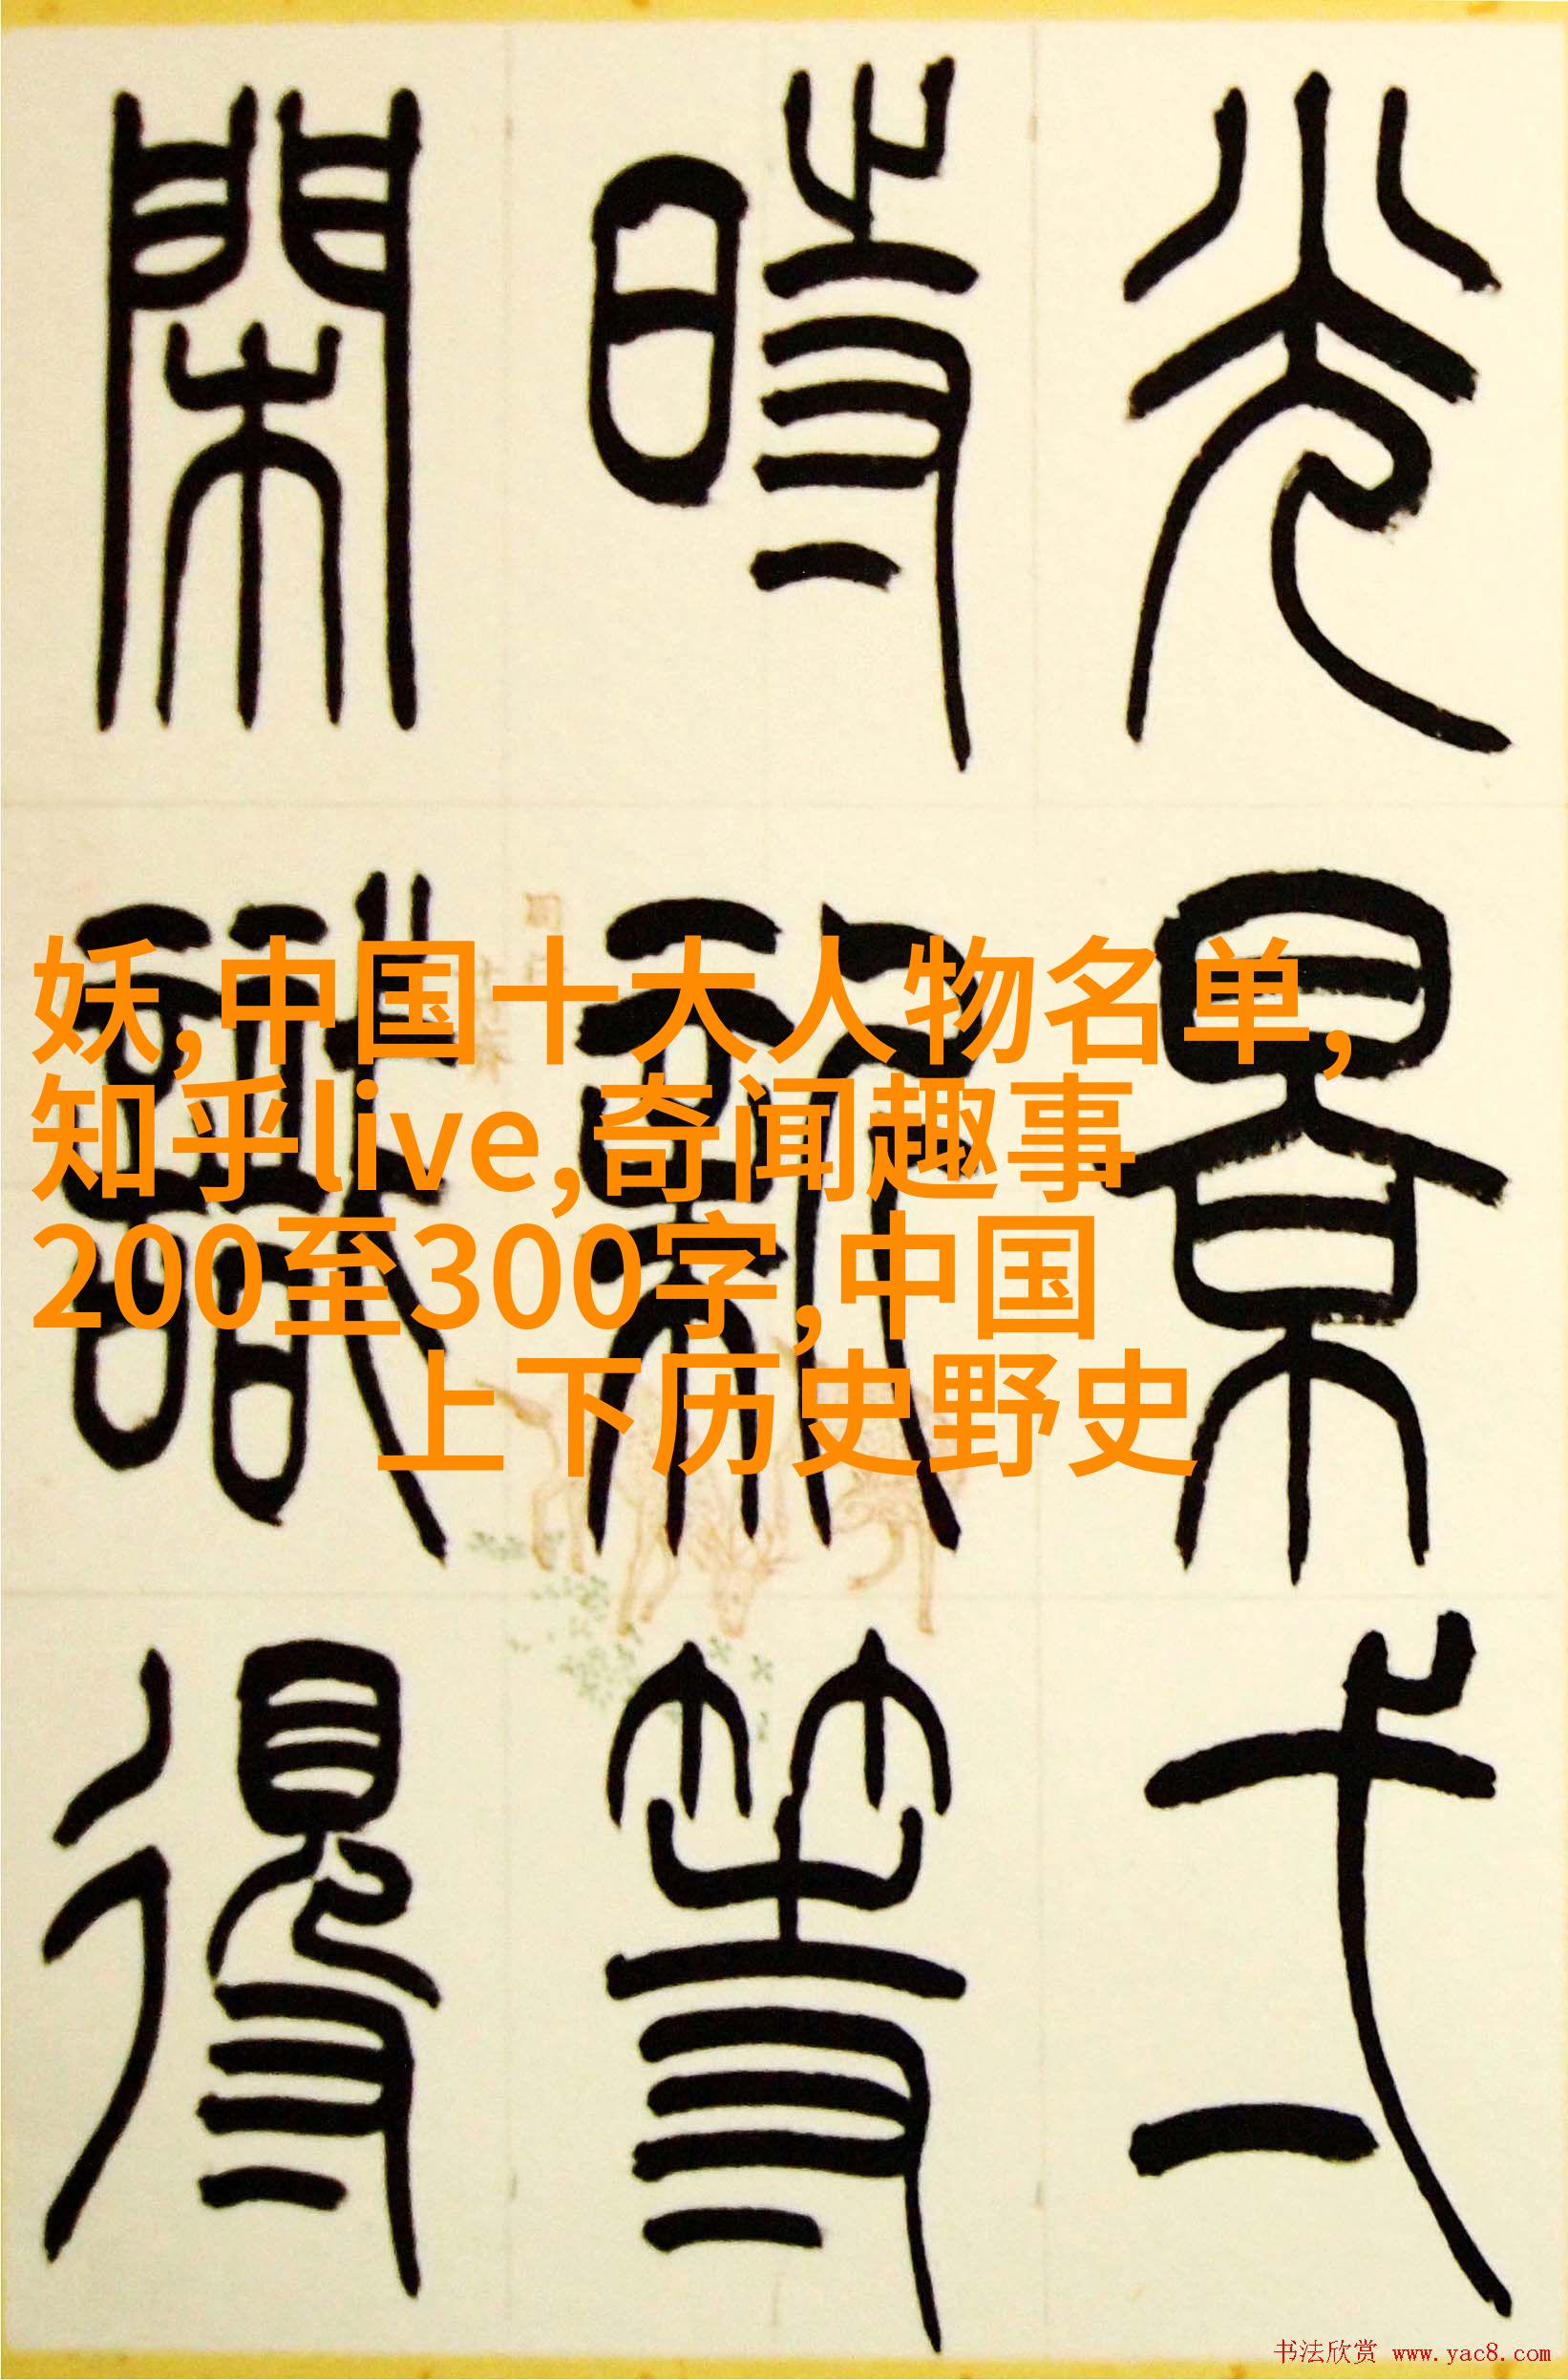 光景弌
時新等
閑識得
妖,中国十大人物名单,
知乎live,奇闻趣事
200至300字,中国
上下历史野史
书法欣赏 www.yac8.com